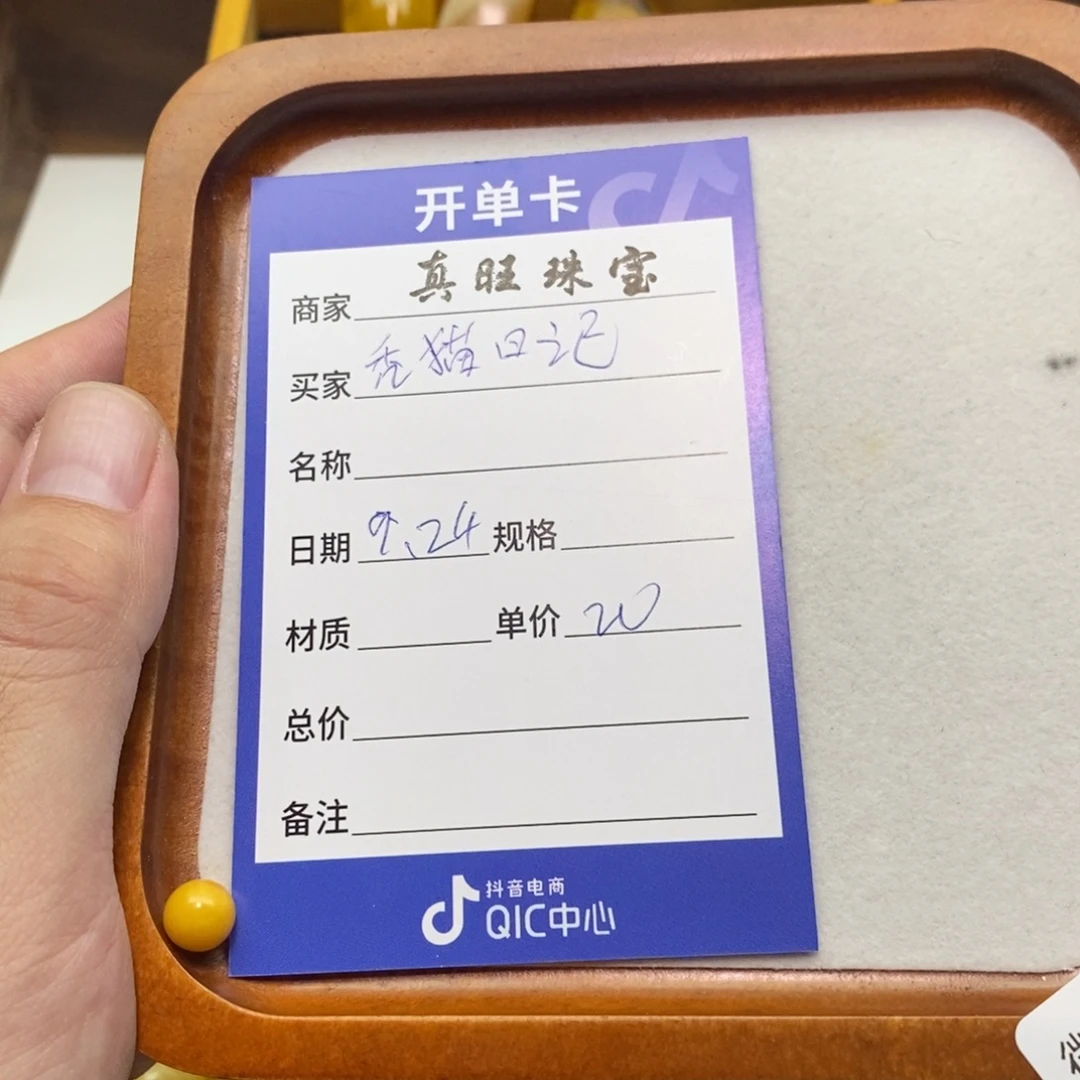 开单卡
商家 真旺珠宝
买家 秃猫日记
名称
日期 9.24 规格
材质 单价 20
总价
备注
抖音电商
QIC中心